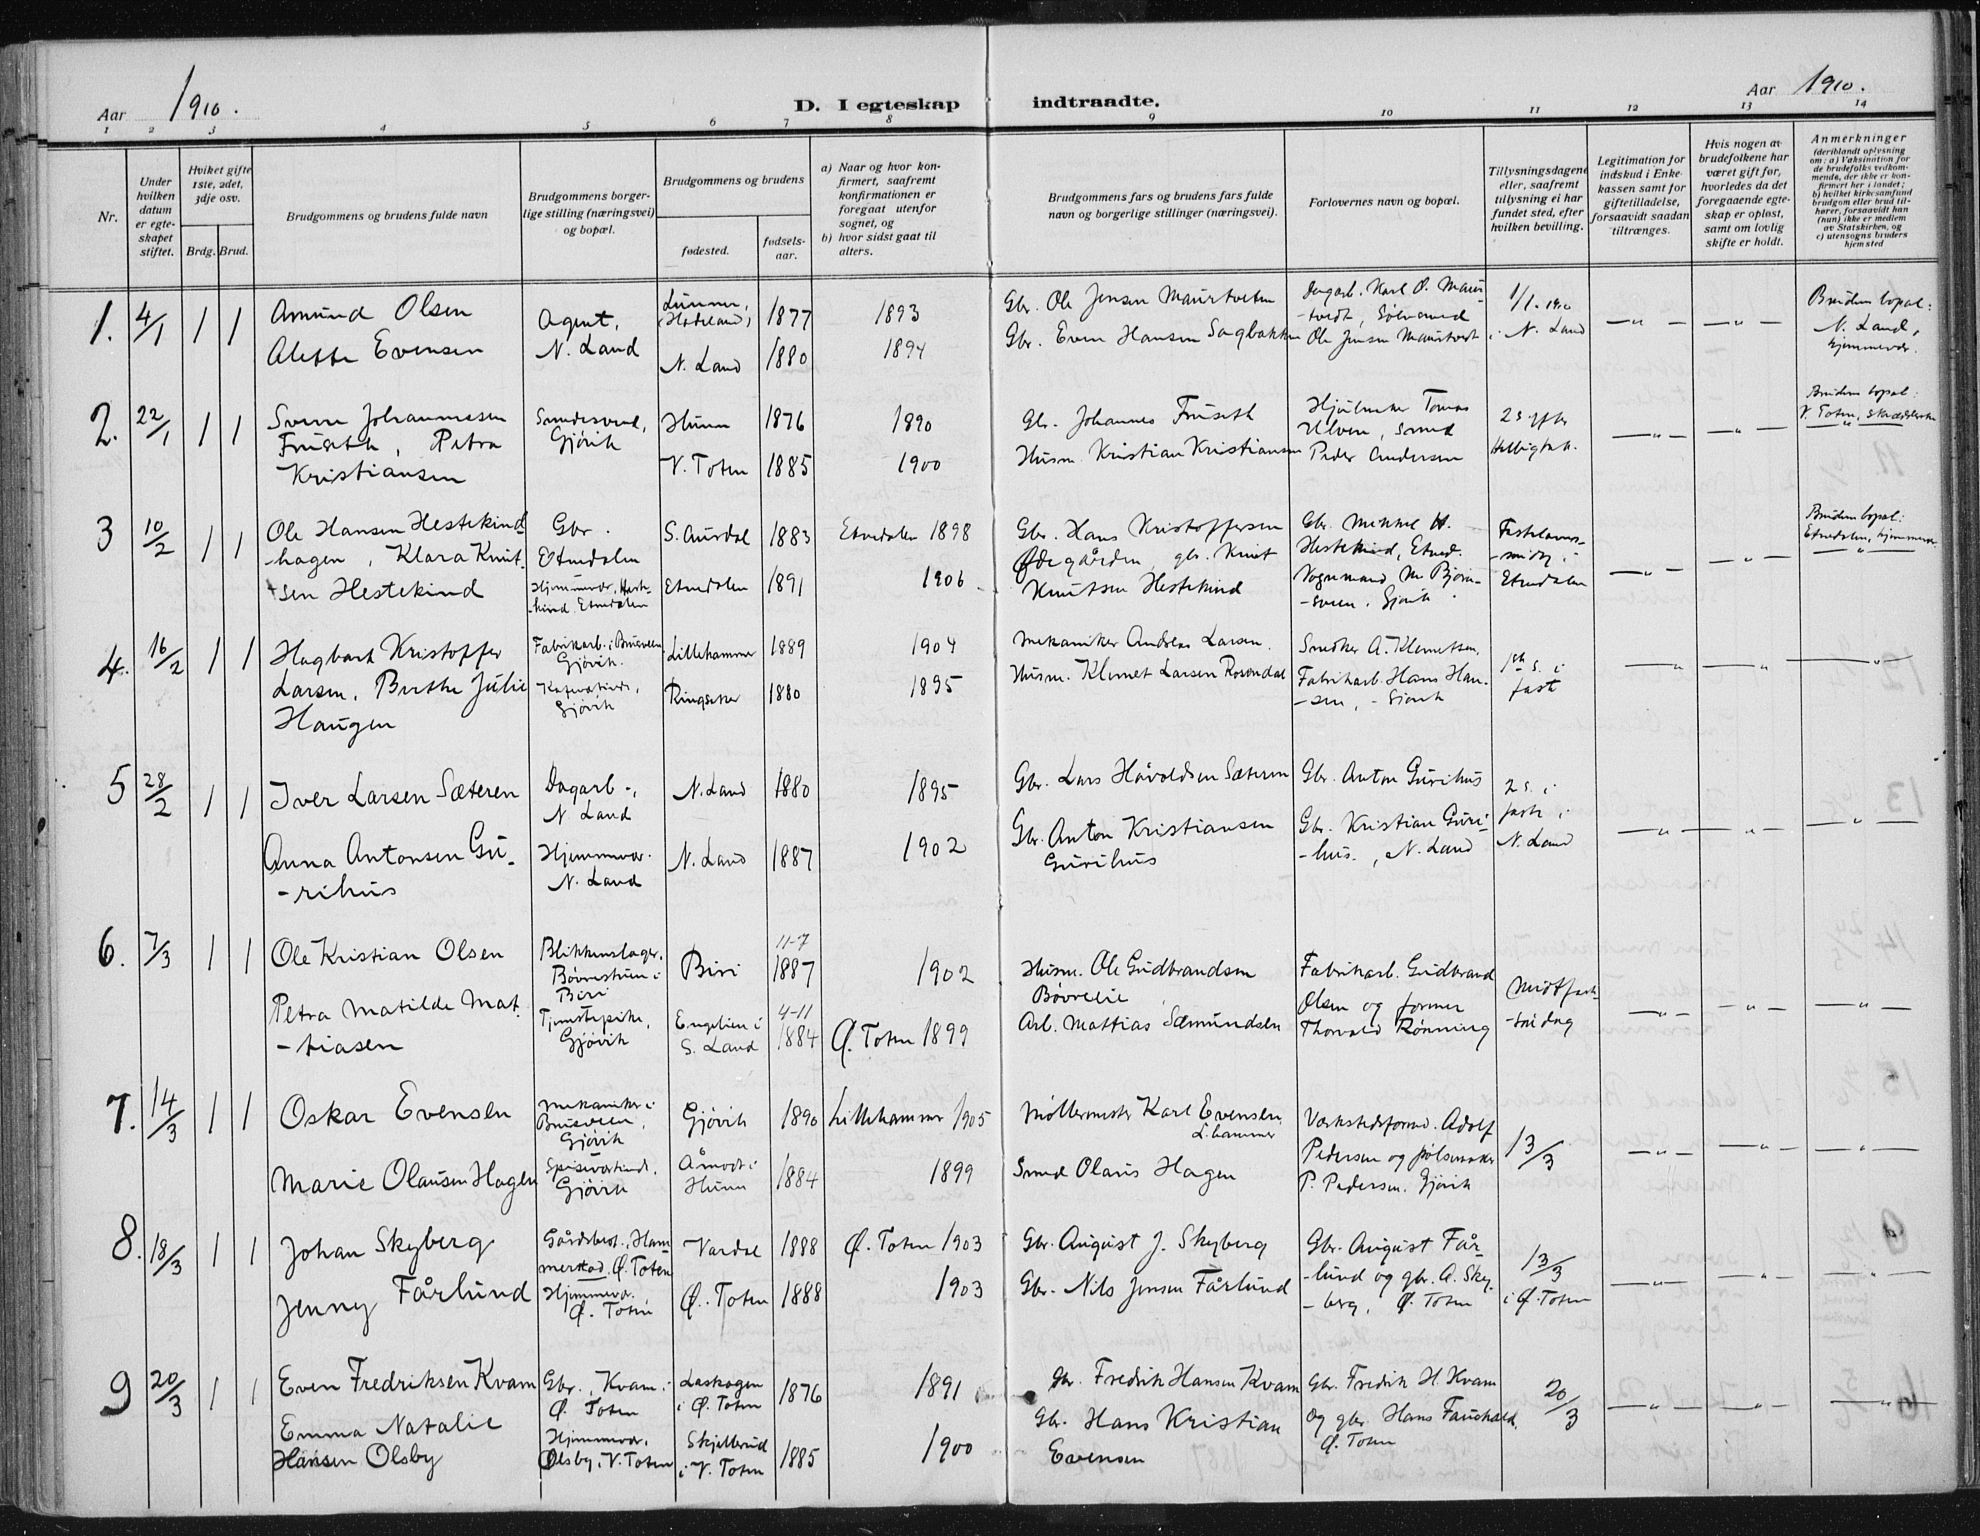 Aar 1910.
D. I egteskap indtraadte.
Aar 1910.
1 2 3 4 5 6 7 8 9 10 11 12 13 14
Nr.
Under hvilken datum er egteskapet stiftet.
Hvilket gifte 1ste, 2det, 3dje osv.
Brdg. Brud.
Brudgommens og brudens fulde navn
Brudgommens borgerlige stilling (næringsvei) og bopæl.
Brudgommens og brudens
fødested.
fødselsaar.
a) Naar og hvor konfirmert, saafremt konfirmationen er foregaat utenfor sognet, og
b) hvor sidst gaat til alters.
Brudgommens fars og brudens fars fulde navn og borgerlige stillinger (næringsvei).
Forlovernes navn og bopæl.
Tillysningsdagene eller, saafremt tillysning ei har fundet sted, efter hvilken bevilling.
Legitimation for indskud i Enkekassen samt for giftetilladelse, forsaavidt saadan tiltrænges.
Hvis nogen av brudefolkene har været gift før, hvorledes da det foregaaende egteskap er opløst, samt om lovlig skifte er holdt.
Anmerkninger (deriblandt oplysning om: a) Vaksination for de brudefolks vedkommende, der ikke er konfirmert her i landet; b) hvilket kirkesamfund brudgom eller brud tilhører, forsaavidt han (hun) ikke er medlem av Statskirken, og c) utensogns bruders hjemsted
1. 4/1 1 1
Amund Olsen
Alette Evensen
Agent,
N. Land
Lunner,
(Hadeland)
N. Land
1877
1880
1893
1894
Gbr. Ole Jensen Maurtveten
Gbr. Even Hansen Sagbakken
Dagarb. Karl O. Maur-
-tvedt, Sølvømed
Ole Jensen Maurtvedt
1/1. 1910
i N. Land
—"— —"—
Brudens bopæl:
N. Land,
hjemmevær.
2. 22/1 1 1
Svenn Johannessen
Fruseth, Petra
Kristiansen
Smedesvend,
Gjøvik
Hunn
V. Toten
1876
1885
1890
1900
Gbr. Johannes Fruseth
Husm. Kristian Kristiansen
Hjulmaker Tomas
Ulven, smed
Peder Andersen
2 s. efter
Helligtrek.
—"— —"—
Brudens bopæl:
V. Toten,
—"—
3 10/2 1 1
Ole Hansen Hestekind-
hagen, Klara Knut-
sen Hestekind
Gbr.
Etnedalen
Hjemmevær, Heste-
kind, Etnedalen
S. Aurdal
Etnedalen
1883
1891
Etnedalen 1898
1906
Gbr. Hans Kristoffersen
Ødegården, gbr. Knut
Knutsen Hestekind
Gbr. Mikkel H.
Hestekind, Etned.
Vognmand M. Bjørn-
-sveen, Gjøvik
Fastelavns-
-søndg. i
Etnedalen
—"— —"—
Brudens bopæl:
Etnedalen, hjemmevær.
—"—
4. 16/2 1 1
Hagbart Kristoffer
Larsen, Berthe Julie
Haugen
Fabrikarb. i Brusveen
Gjøvik.
Gjøvik
Lillehammer
Ringsaker
1889
1880
1904
1895
Mekaniker Andreas Larsen.
Husm. Klemet Larsen Rosendal
Snedker A. Klemetsen,
Fabrikarb. Hans Han-
-sen, - Gjøvik
1ste s. i
faste
—"— —"— —"—
5 28/2 1 1
Iver Larsen Sæteren
Anna Antonsen Gu-
-rihus
Dagarb -,
N. Land
Hjemmevær.
N. Land
N. Land
N. Land
1880
1887
1895
1902
Gbr. Lars Håvoldsen Sæteren
Gbr. Anton Kristiansen
Gurihus
Gbr. Anton Gurihus
Gbr. Kristian Guri-
-hus, N. Land
2 s. i
faste i
N. Land
—"— —"— —"—
6. 7/3 1 1
Ole Kristian Olsen
Petra Matilde Mat-
-tiasen
Blikkenslager,
Bøvrestuen i
Biri
Tjenestepike,
Gjøvik
Biri
Engelien i
S. Land
11-7
1887
4-11
1884
1902
Ø. Toten 1899
Husm. Ole Gudbrandsen
Bøvrelie,
Arb. Mattias Sæmundsen
Fabrikarb. Gudbrand
Olsen og former
Thorvald Rønning
Midtfaste-
-søndag
—"— —"— —"—
7. 14/3 1 1
Oskar Evensen
Marie Olausen Hagen
Mekaniker i
Brusveen,
Gjøvik
Spisevertinde,
Gjøvik
Gjøvik
Åmodt i
Hunn
1890
1884
Lillehammer 1905
1899
Møllermester Karl Evensen
L.hammer
Smed Olaus Hagen
Verkstedsformd. Adolf
Pedersen og pølsemaker
P. Pedersen, Gjøvik
13/3
—"— —"— —"—
8. 18/3 1 1
Johan Skyberg
Jenny Fårlund
Gårdsbest., Ham-
merstad. Ø. Toten
Hjemmevær.
Ø. Toten
Vardal
Ø. Toten
1888
1888
Ø. Toten 1903
1903
Gbr. August J. Skyberg
Gbr. Nils Jensen Fårlund
Gbr. August Får-
-lund og gbr. A. Sky-
-berg, Ø. Toten
13/3
i Ø. Toten
—"— —"— —"—
9 20/3 1 1
Even Fredriksen Kvam
Emma Natalie
Hansen Olsby
Gbr., Kvam i
Ø. Toten
Hjemmevær,
Olsby, V. Toten
Laskogen
i Ø. Toten
Skjellerud
i V. Toten
1876
1885
1891
1900
Gbr. Fredrik Hansen Kvam
Gbr. Hans Kristian
Evensen
Gbr. Fredrik H. Kvam
og gbr. Hans Fauchald,
Ø. Toten
20/3
—"— —"— —"—